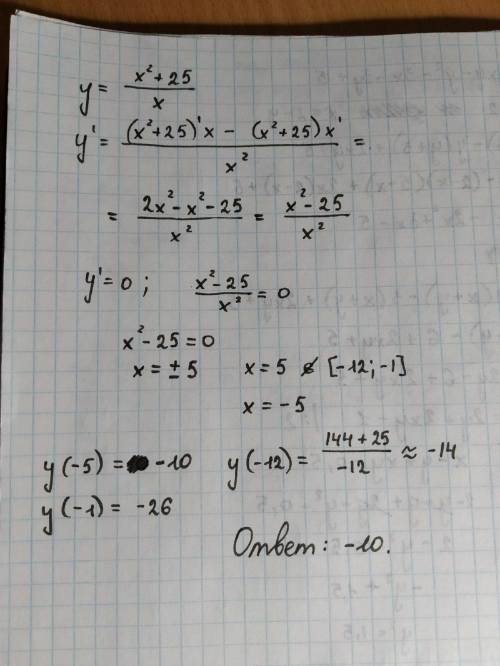 y = (x² + 25) / x
y' = ((x² + 25)' x − (x² + 25) x') / x² =
= (2x² − x² − 25) / x² = (x² − 25) / x²
y' = 0 ; (x² − 25) / x² = 0
x² − 25 = 0
x = ± 5 x = 5 ∉ [−12; −1]
x = −5
y(−5) = −10 y(−12) = (144 + 25) / −12 ≈ −14
y(−1) = −26
Ответ: −10.